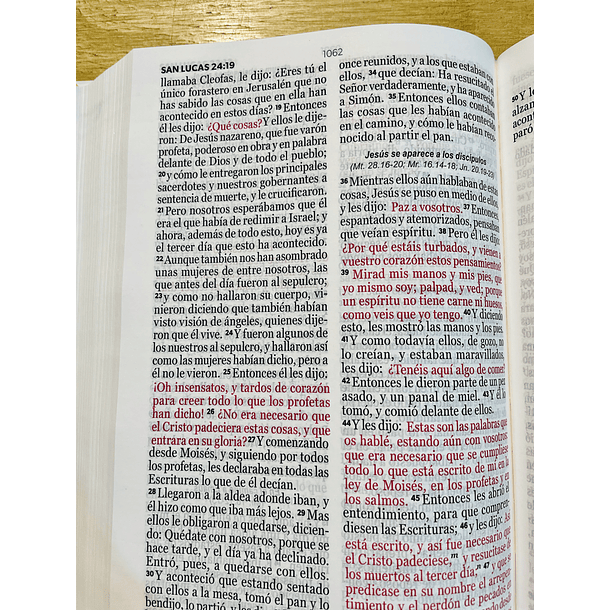 SAN LUCAS 24:19
1062
llamaba Cleofas, le dijo: ¿Eres tú el
único forastero en Jerusalén que no
has sabido las cosas que en ella han
acontecido en estos días? 19 Entonces
él les dijo: ¿Qué cosas? Y ellos le dije-
ron: De Jesús nazareno, que fue varón
profeta, poderoso en obra y en palabra
delante de Dios y de todo el pueblo;
20 y cómo le entregaron los principales
sacerdotes y nuestros gobernantes a
sentencia de muerte, y le crucificaron.
21 Pero nosotros esperábamos que él
era el que había de redimir a Israel; y
ahora, además de todo esto, hoy es ya
el tercer día que esto ha acontecido.
22 Aunque también nos han asombrado
unas mujeres de entre nosotros, las
que antes del día fueron al sepulcro;
23 y como no hallaron su cuerpo, vi-
nieron diciendo que también habían
visto visión de ángeles, quienes dije-
ron que él vive. 24 Y fueron algunos de
los nuestros al sepulcro, y hallaron así
como las mujeres habían dicho, pero a
él no le vieron. 25 Entonces él les dijo:
¡Oh insensatos, y tardos de corazón
para creer todo lo que los profetas
han dicho! 26 ¿No era necesario que
el Cristo padeciera estas cosas, y que
entrara en su gloria? 27 Y comenzando
desde Moisés, y siguiendo por todos
los profetas, les declaraba en todas las
Escrituras lo que de él decían.
28 Llegaron a la aldea adonde iban, y
él hizo como que iba más lejos. 29 Mas
ellos le obligaron a quedarse, dicien-
do: Quédate con nosotros, porque se
hace tarde, y el día ya ha declinado.
Entró, pues, a quedarse con ellos.
30 Y aconteció que estando sentado
con ellos a la mesa, tomó el pan y lo
bendijo, lo partió, y les dio.
once reunidos, y a los que estaban con
ellos, 34 que decían: Ha resucitado el
Señor verdaderamente, y ha aparecido
a Simón. 35 Entonces ellos contaban
las cosas que les habían acontecido
en el camino, y cómo le habían reco-
nocido al partir el pan.
Jesús se aparece a los discípulos
(Mt. 28.16-20; Mr. 16.14-18; Jn. 20.19-23)
36 Mientras ellos aún hablaban de estas
cosas, Jesús se puso en medio de ellos,
y les dijo: Paz a vosotros. 37 Entonces,
espantados y atemorizados, pensaban
que veían espíritu. 38 Pero él les dijo:
¿Por qué estáis turbados, y vienen a
vuestro corazón estos pensamientos?
39 Mirad mis manos y mis pies, que
yo mismo soy; palpad, y ved; porque
un espíritu no tiene carne ni huesos,
como veis que yo tengo. 40 Y diciendo
esto, les mostró las manos y los pies.
41 Y como todavía ellos, de gozo, no
lo creían, y estaban maravillados,
les dijo: ¿Tenéis aquí algo de comer?
42 Entonces le dieron parte de un pez
asado, y un panal de miel. 43 Y él lo
tomó, y comió delante de ellos.
44 Y les dijo: Estas son las palabras que
os hablé, estando aún con vosotros:
que era necesario que se cumpliese
todo lo que está escrito de mí en la
ley de Moisés, en los profetas y en
los salmos. 45 Entonces les abrió el
entendimiento, para que compren-
diesen las Escrituras; 46 y les dijo: Así
está escrito, y así fue necesario que
el Cristo padeciese, m y resucitase de
los muertos al tercer día, n 47 y que se
predicase en su nombre el arrepen-
timiento y el perdón de pecados
50 Y le
alzan
acont
paró